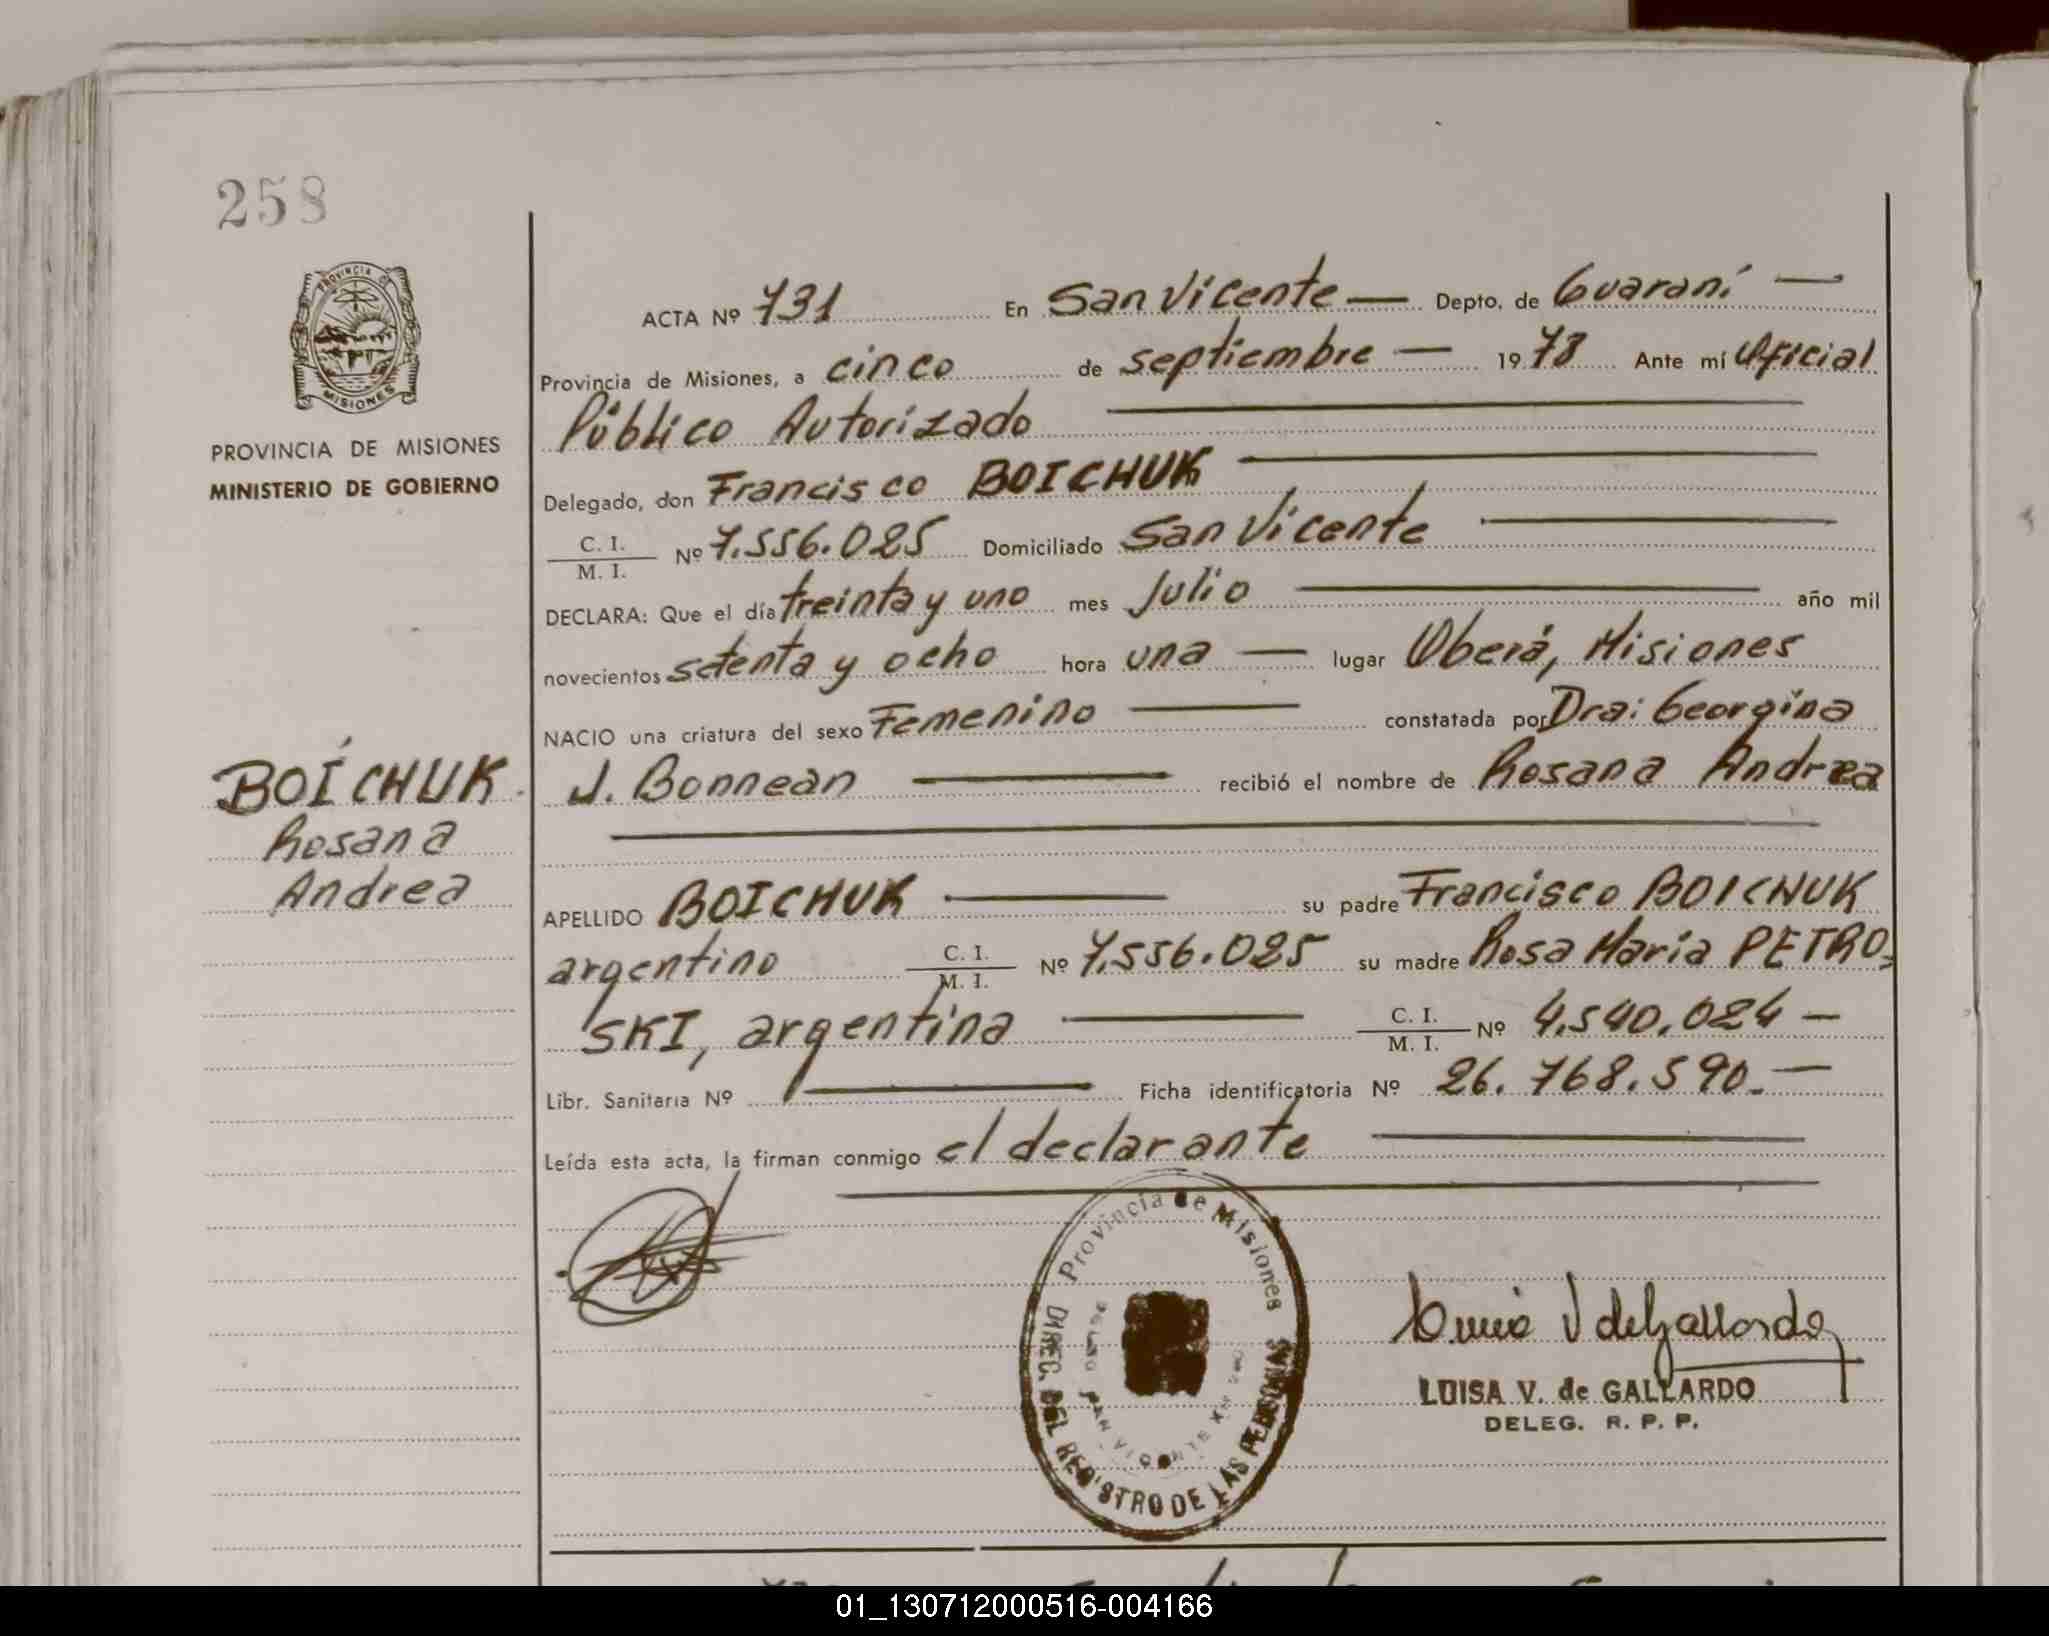 258
PROVINCIA DE
MISIONES
PROVINCIA DE MISIONES
MINISTERIO DE GOBIERNO
BOÍCHUK
Rosana
Andrea
ACTA Nº 731 En San Vicente — Depto. de Guaraní —
Provincia de Misiones, a cinco de septiembre — 1978 Ante mí Oficial
Público Autorizado
Delegado, don Francisco BOICHUK
C. I.
M. I. Nº 7.556.025 Domiciliado San Vicente
DECLARA: Que el día treinta y uno mes Julio año mil
novecientos setenta y ocho hora una — lugar Oberá, Misiones
NACIO una criatura del sexo Femenino constatada por Dra: Georgina
J. Bonnean recibió el nombre de Rosana Andrea
APELLIDO BOICHUK su padre Francisco BOICHUK
argentino C. I.
M. I. Nº 7.556.025 su madre Rosa Maria PETRO=
SKI, argentina C. I.
M. I. Nº 4.540.024 —
Libr. Sanitaria Nº Ficha identificatoria Nº 26.768.590.—
Leída esta acta, la firman conmigo el declarante
Provincia de Misiones
DIREC. DEL REGISTRO DE LAS PERSONAS
SAN VICENTE
V de Gallardo
LUISA V. de GALLARDO
DELEG. R. P. P.
01_130712000516-004166